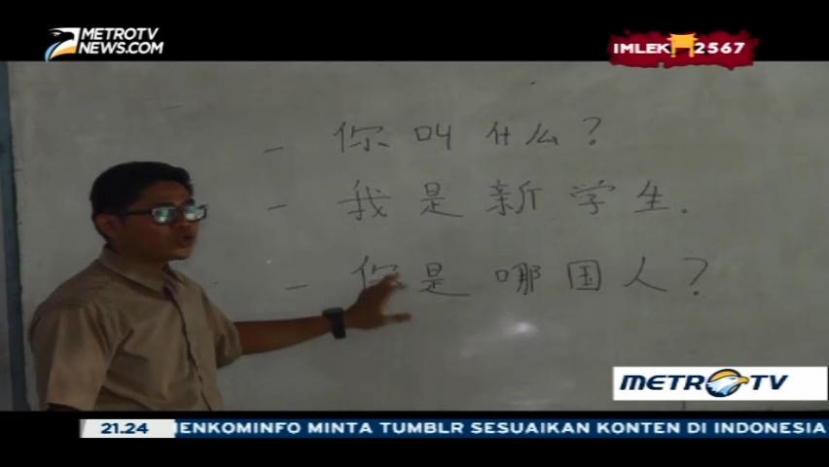 METROTV
NEWS.COM
IMLEK 2567
- 你叫什么?
- 我是新学生.
- 你是哪国人?
METRO TV
21.24 ENKOMINFO MINTA TUMBLR SESUAIKAN KONTEN DI INDONESIA